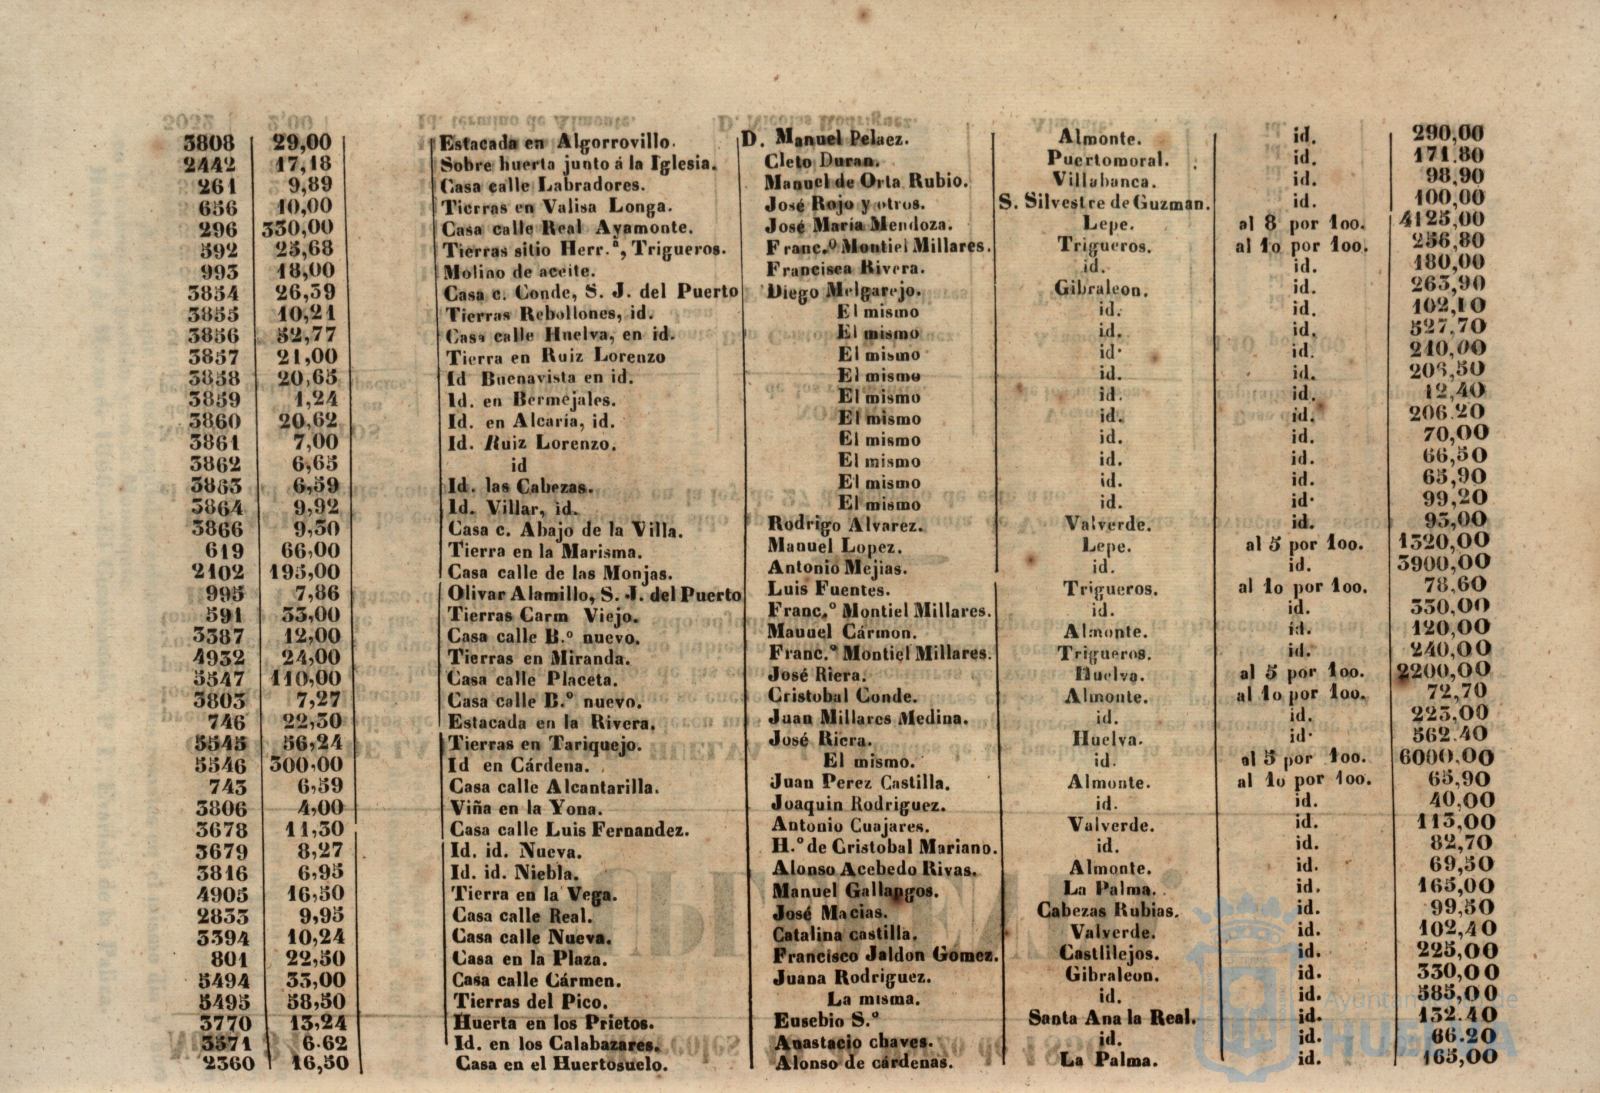 3808 29,00 Estacada en Algorrovillo. D. Manuel Pelaez. Almonte. id. 290,00
2442 17,18 Sobre huerta junto á la Iglesia. Cleto Duran. Puertomoral. id. 171.80
261 9,89 Casa calle Labradores. Manuel de Orta Rubio. Villabanca. id. 98,90
656 10,00 Tierras en Valisa Longa. José Rojo y otros. S. Silvestre de Guzman. id. 100,00
296 330,00 Casa calle Real Ayamonte. José María Mendoza. Lepe. al 8 por 100. 4125,00
592 25,68 Tierras sitio Herr.ª, Trigueros. Franc.º Montiel Millares. Trigueros. al 10 por 100. 256,80
993 18,00 Molino de aceite. Francisca Rivera. id. id. 180,00
3854 26,39 Casa c. Conde, S. J. del Puerto Diego Melgarejo. Gibraleon. id. 263,90
3855 10,21 Tierras Rebollones, id. El mismo id. id. 102,10
3856 52,77 Casa calle Huelva, en id. El mismo id. id. 527,70
3857 21,00 Tierra en Ruiz Lorenzo El mismo id. id. 210,00
3858 20,65 Id Buenavista en id. El mismo id. id. 206,50
3859 1,24 Id. en Bermejales. El mismo id. id. 12,40
3860 20,62 Id. en Alcaría, id. El mismo id. id. 206.20
3861 7,00 Id. Ruiz Lorenzo. El mismo id. id. 70,00
3862 6,65 id El mismo id. id. 66,50
3863 6,59 Id. las Cabezas. El mismo id. id. 65,90
3864 9,92 Id. Villar, id. El mismo id. id. 99,20
3866 9,30 Casa c. Abajo de la Villa. Rodrigo Alvarez. Valverde. id. 93,00
619 66,00 Tierra en la Marisma. Manuel Lopez. Lepe. al 5 por 100. 1320,00
2102 195,00 Casa calle de las Monjas. Antonio Mejias. id. id. 3900,00
995 7,86 Olivar Alamillo, S. J. del Puerto Luis Fuentes. Trigueros. al 10 por 100. 78,60
591 33,00 Tierras Carm Viejo. Franc.º Montiel Millares. id. id. 330,00
3387 12,00 Casa calle B.º nuevo. Manuel Cármon. Almonte. id. 120,00
4932 24,00 Tierras en Miranda. Franc.º Montiel Millares. Trigueros. id. 240,00
5547 110,00 Casa calle Placeta. José Riera. Huelva. al 5 por 100. 2200,00
3803 7,27 Casa calle B.º nuevo. Cristobal Conde. Almonte. al 10 por 100. 72,70
746 22,30 Estacada en la Rivera. Juan Millares Medina. id. id. 223,00
5545 56,24 Tierras en Tariquejo. José Riera. Huelva. id. 562.40
5546 300,00 Id en Cárdena. El mismo. id. al 5 por 100. 6000,00
743 6,59 Casa calle Alcantarilla. Juan Perez Castilla. Almonte. al 10 por 100. 65,90
3806 4,00 Viña en la Yona. Joaquin Rodriguez. id. id. 40,00
3678 11,30 Casa calle Luis Fernandez. Antonio Cuajares. Valverde. id. 113,00
3679 8,27 Id. id. Nueva. H.º de Cristobal Mariano. id. id. 82,70
3816 6,95 Id. id. Niebla. Alonso Acebedo Rivas. Almonte. id. 69,50
4905 16,50 Tierra en la Vega. Manuel Gallangos. La Palma. id. 165,00
2833 9,95 Casa calle Real. José Macias. Cabezas Rubias. id. 99,50
3394 10,24 Casa calle Nueva. Catalina castilla. Valverde. id. 102,40
801 22,50 Casa en la Plaza. Francisco Jaldon Gomez. Castlilejos. id. 225,00
5494 33,00 Casa calle Cármen. Juana Rodriguez. Gibraleon. id. 330,00
5495 58,50 Tierras del Pico. La misma. id. id. 585,00
3770 13,24 Huerta en los Prietos. Eusebio S.º Santa Ana la Real. id. 132.40
3571 6.62 Id. en los Calabazares. Anastacio chaves. id. id. 66.20
2360 16,50 Casa en el Huertosuelo. Alonso de cárdenas. La Palma. id. 165,00
Ayuntamiento de
HUELVA